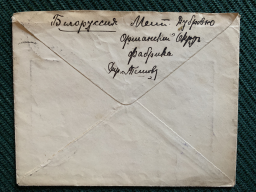 Белоруссия Мест Дубровно
Оршанский Округ
Фабрика